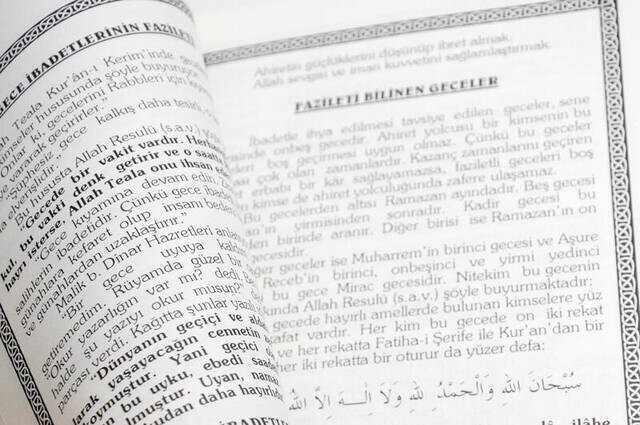 GECE İBADETLERİNİN FAZİLETİ
Teala Kur'ân-ı Kerim'inde
kimseler hususunda şöyle buyuruyor
Onlar ki gecelerini Rabbleri için
ve yararak geçirirler."
"Şüphesiz gece kalkış daha tesirli
elverişlidir."
Bu hususta Allah Resulü (s.a.v.)
"Gecede bir vakit vardır. Herhangi
kul, bu vakti denk getirir ve o saatte
hayrı isterse, Allah Teala onu ihsan eder
"Gece kıyamına devam edin. Çünkü
salihlerin ibadetidir. Çünkü gece ibadeti
günahlara kefaret olup insanı bedeni
ve günahlardan uzaklaştırır."
Malik b. Dinar Hazretleri anlatıyor
"Bir gece uyuya kaldım
getiremedim. Rüyamda güzel bir
"Okur yazarlığın var mı? dedi.
halde şu yazıyı okur musun?
parçası verdi. Kağıtta şunlar yazılıydı
"Dünyanın geçici ve aldatıcı
larak yaşayacağın cennetin
koymuştur. Yani geçici
n bu uyku, ebedi saadet
lmuştur. Uyan, namaz
kudan daha hayırlıdır
İBADETLER
Ahiretin güçlüklerini düşünüp ibret almak.
Allah sevgisi ve iman kuvvetini sağlamlaştırmak.
FAZİLETİ BİLİNEN GECELER
İbadetle ihya edilmesi tavsiye edilen geceler, sene
içinde onbeş gecedir. Ahiret yolcusu bir kimsenin bu
boş geçirmesi uygun olmaz. Çünkü bu geceler
sı çok olan zamanlardır. Kazanç zamanlarını geçiren
erbabı bir kâr sağlayamazsa, faziletli geceleri boş
n kimse de ahiret yolculuğunda zafere ulaşamaz.
Bu gecelerden altısı Ramazan ayındadır. Beş gecesi
an'ın yirmisinden sonradır. Kadir gecesi bu
den birinde aranır. Diğer birisi ise Ramazan'ın on
gecesidir.
Diğer geceler ise Muharrem'in birinci gecesi ve Aşure
Receb'in birinci, onbeşinci ve yirmi yedinci
bu gece Mirac gecesidir. Nitekim bu gecenin
hakkında Allah Resulü (s.a.v.) şöyle buyurmaktadır:
gecede hayırlı amellerde bulunan kimselere yüz
afat vardır. Her kim bu gecede on iki rekat
ve her rekatta Fatiha-i Şerife ile Kur'an'dan bir
her iki rekatta bir oturur da yüzer defa:
سُبْحَانَ اللّٰهِ وَالْحَمْدُ لِلّٰهِ وَلَا اِلٰهَ اِلَّا اللّٰهُ
lâ ilâhe